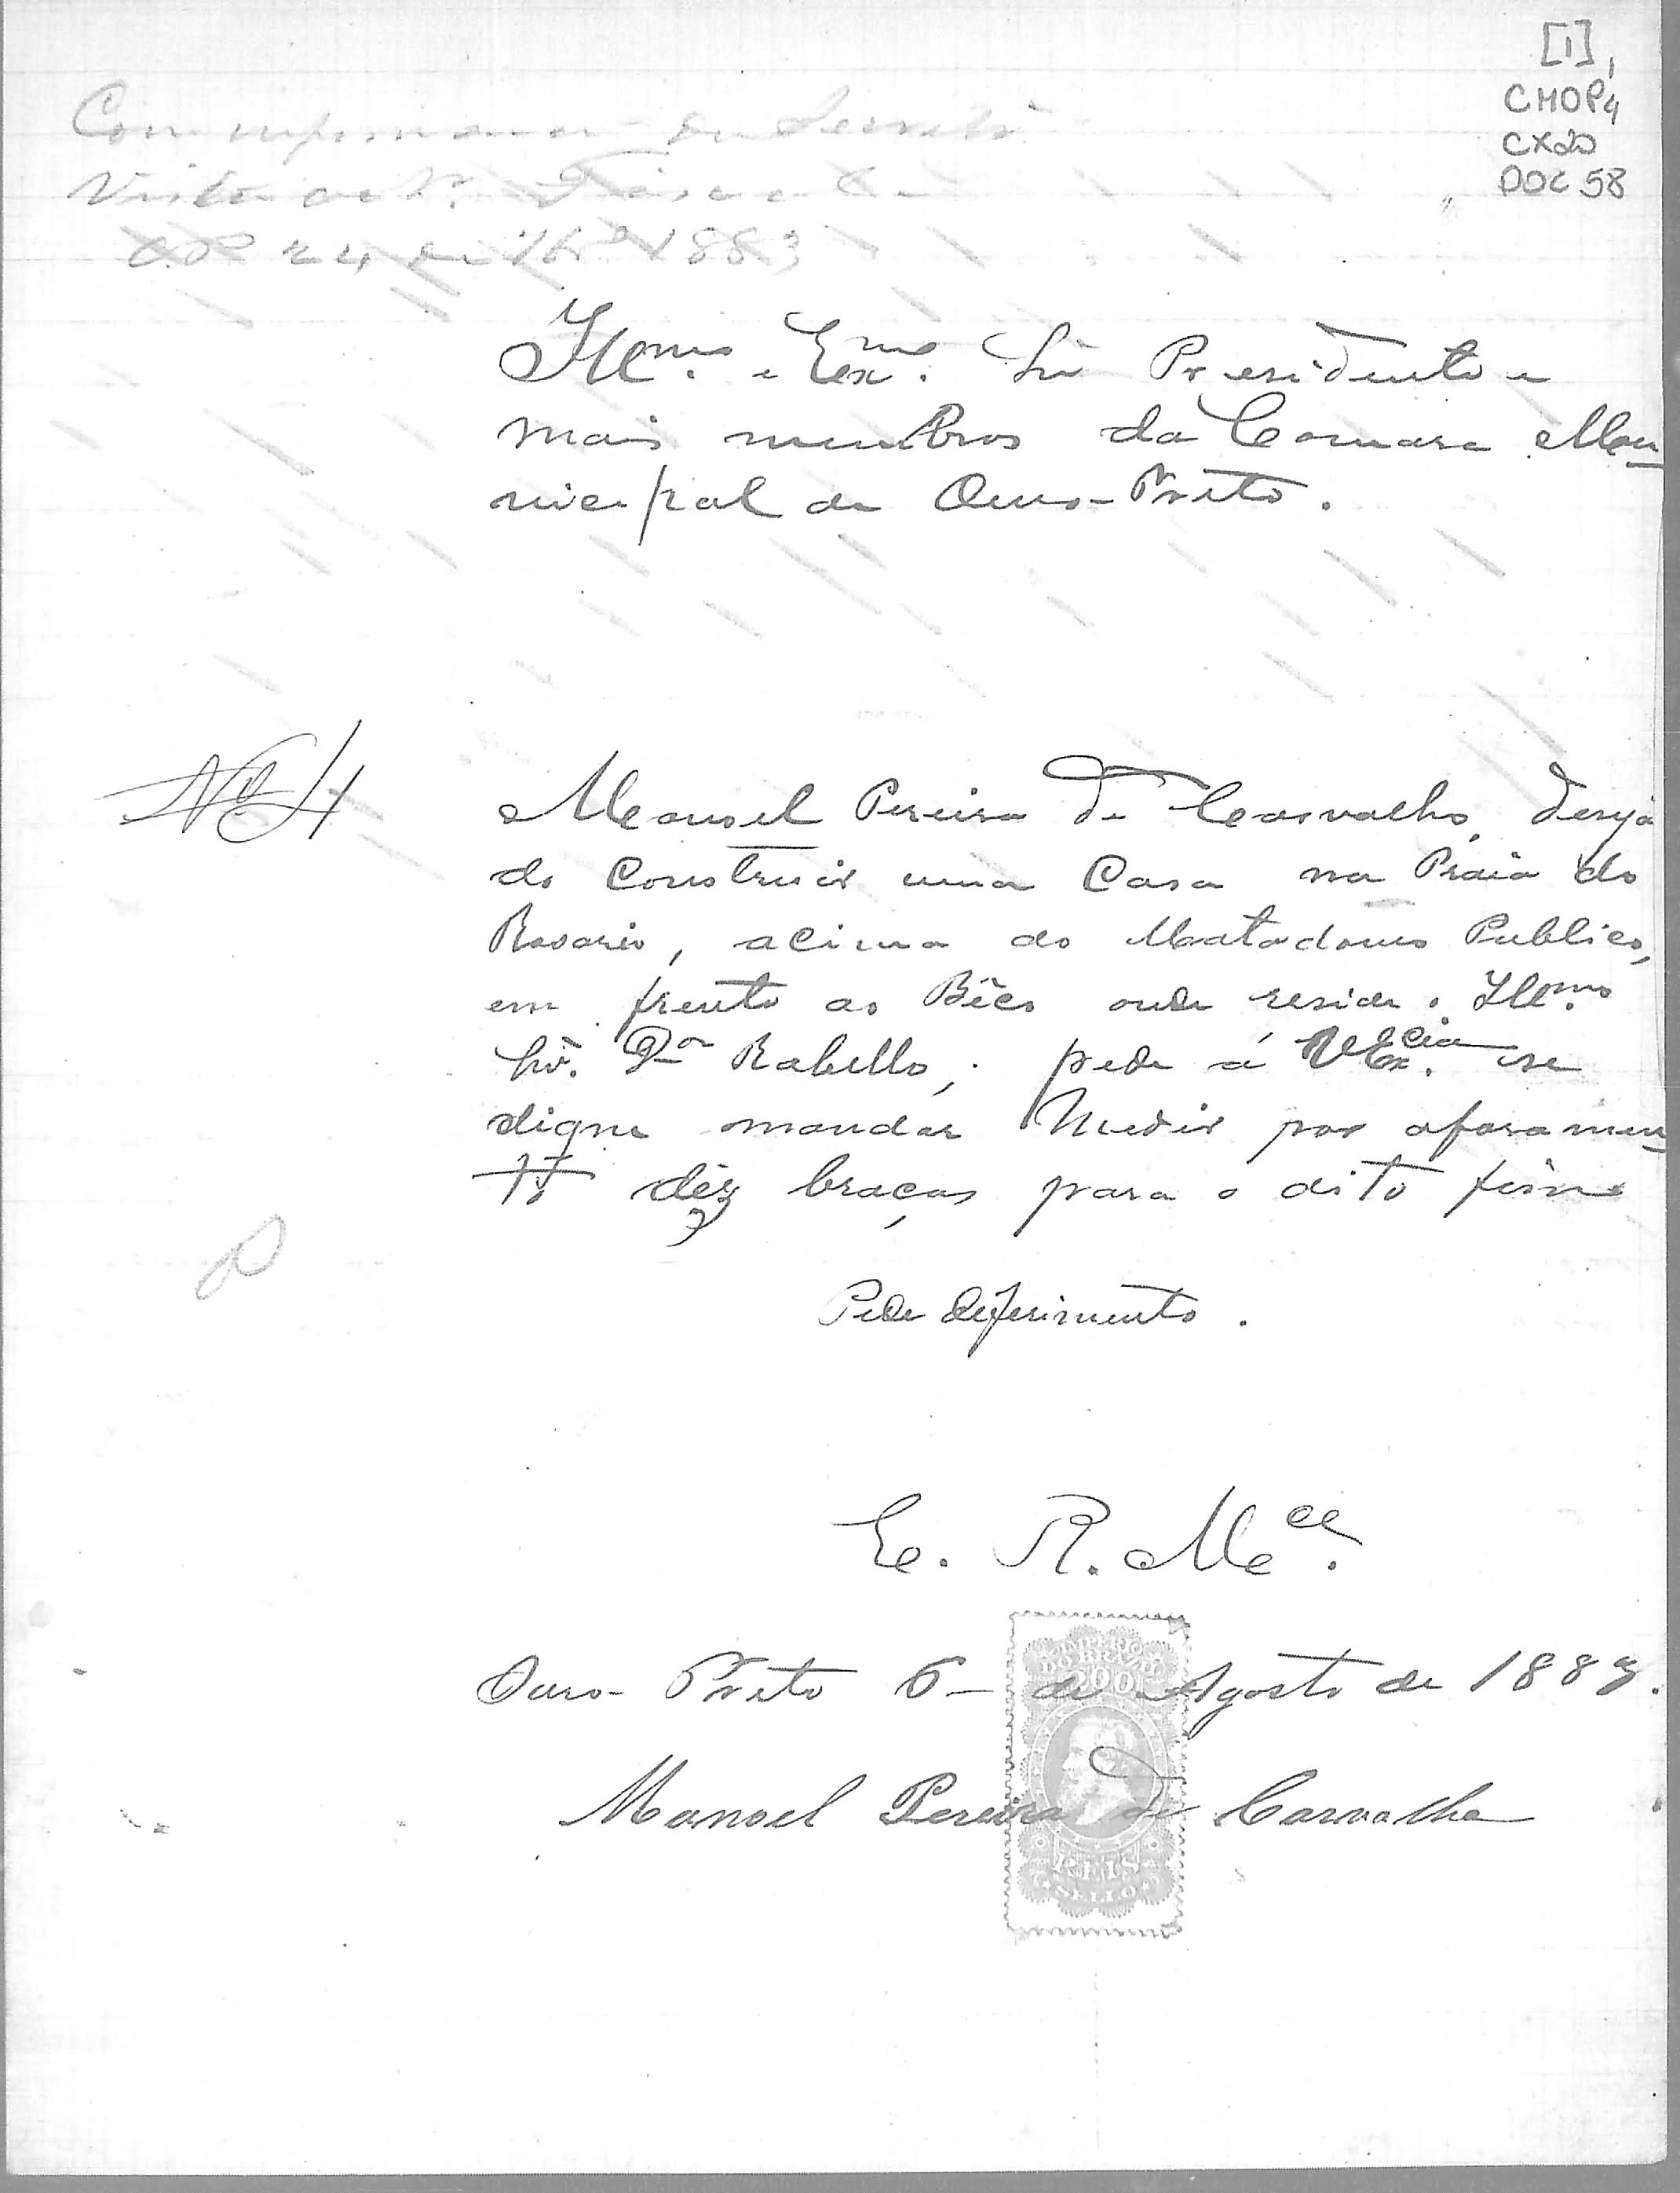 [1]
CMOP4
CX20
DOC 58
Com informação da Secretª
Vista ao Sr. Fiscal
O P 24 de 1883
Illmo. e Exmo. Snr Presidente e
mais membros da Camara Mu-
nicipal de Ouro-Preto.
Nº 4
Manoel Pereira de Carvalho, deseja
do Construir uma Casa na Praia do
Rosario, acima do Matadouro Publico,
em frente ao Bêco onde reside o Illmo.
Snr. Dor Rabello, pede á VExcia. se
digne mandar Medir por aforamen
to dêz braças para o dito fim
Pede deferimento.
E. R. Mce.
IMPERIO
DO BRAZIL
200
REIS
SELLO
Ouro-Preto 6 de Agosto de 1883.
Manoel Pereira de Carvalho